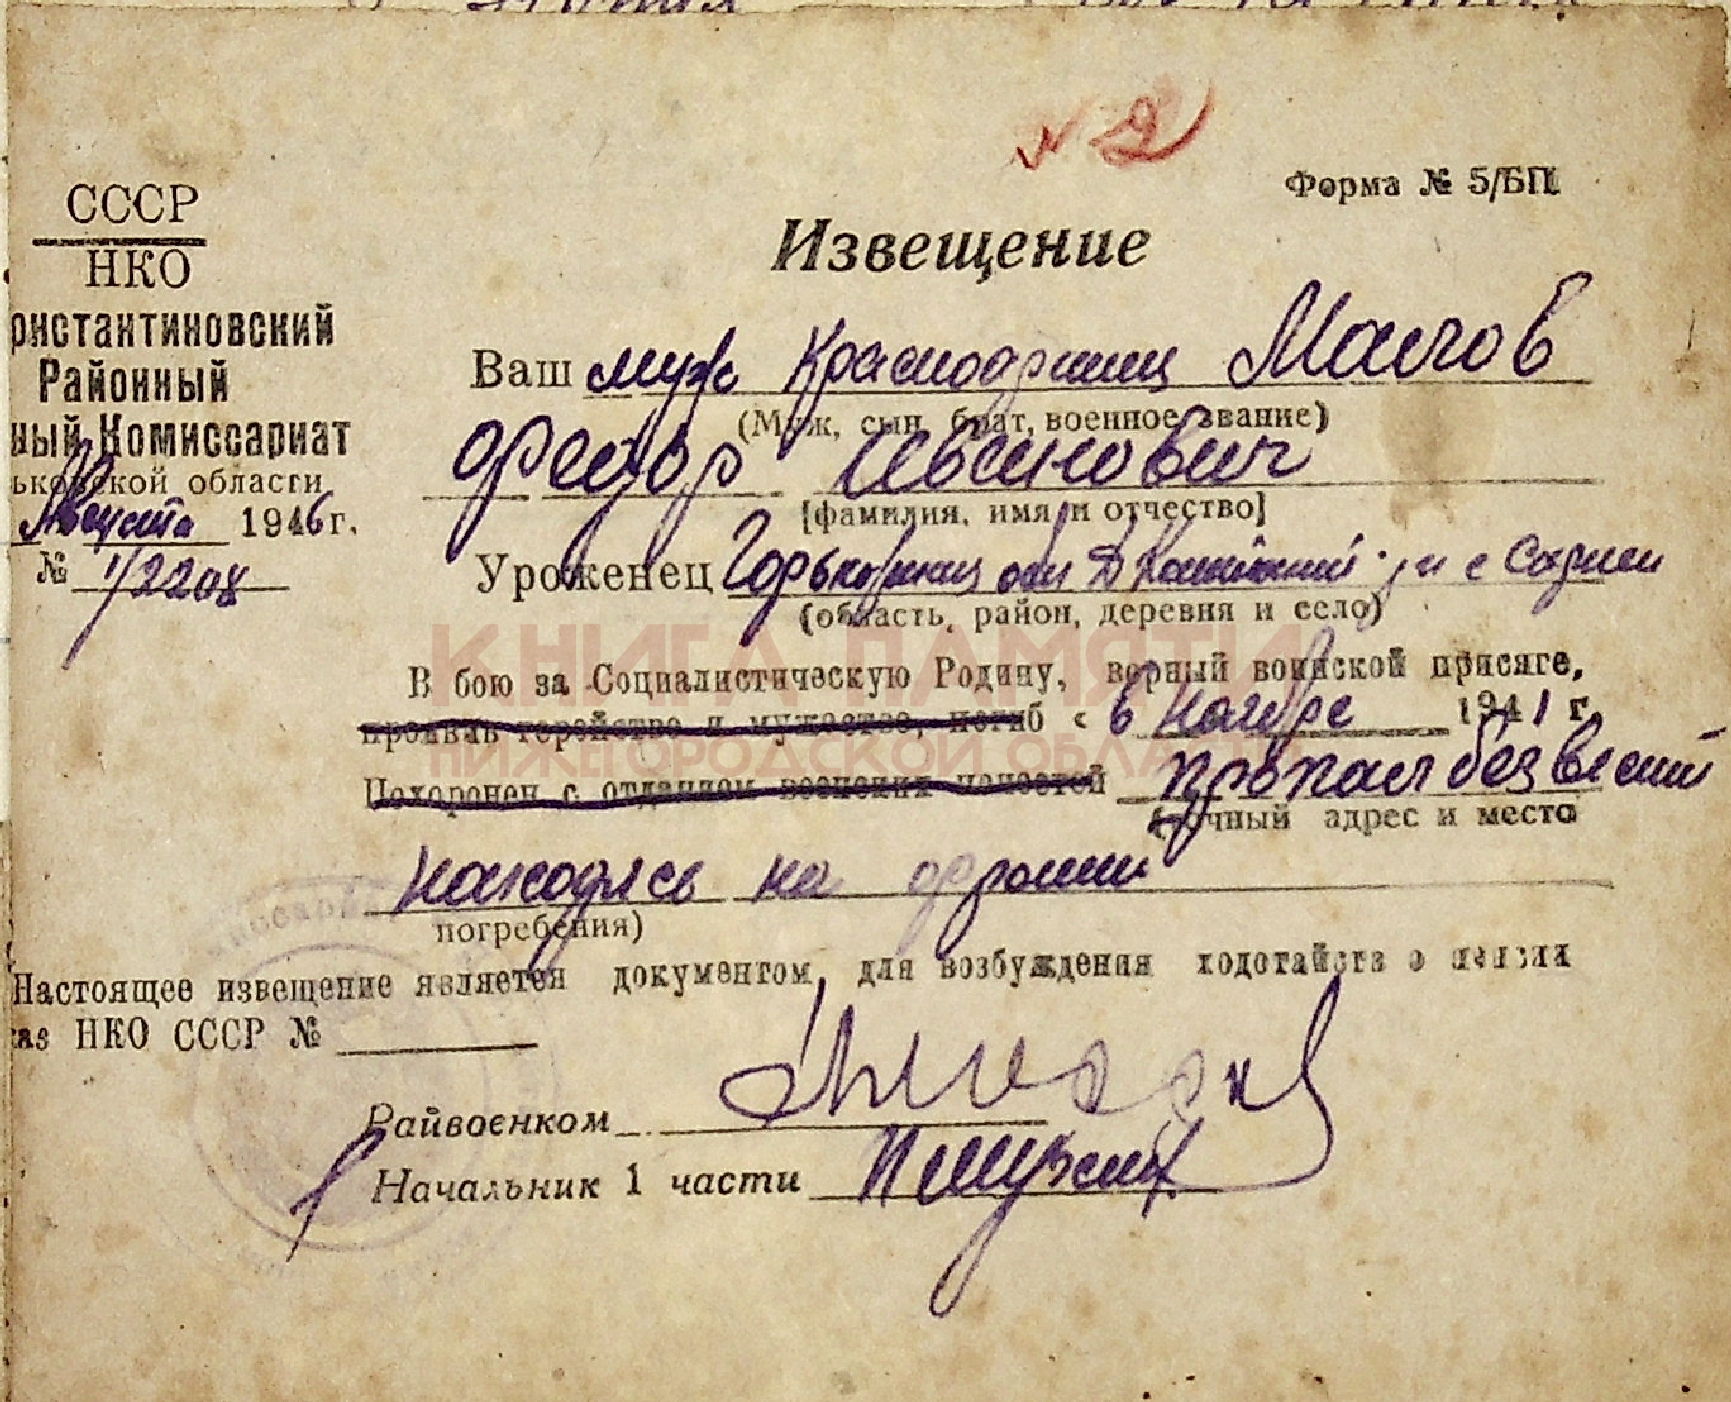 № 2
Форма № 5/БП
СССР
НКО
онстантиновский
Районный
ный Комиссариат
ьковской области
Августа 1946 г.
№ 1/2208
Извещение
Ваш муж Красноармеец Малов
(Муж, сын, брат, военное звание)
Федор Иванович
[фамилия, имя и отчество]
Уроженец Горьковская обл Д Константин р-н с
(область, район, деревня и село)
В бою за Социалистическую Родину, верный воинской присяге,
проявив геройство и мужество, погиб « в Ноябре 1941 г.
Похоронен с отданием воинских почестей пропал без вести
(точный адрес и место
находясь на фронте
погребения)
Настоящее извещение является документом для возбуждения ходотайств о пенсии
каз НКО СССР №
Райвоенком
Начальник 1 части
КНИГА ПАМЯТИ
НИЖЕГОРОДСКОЙ ОБЛАСТИ